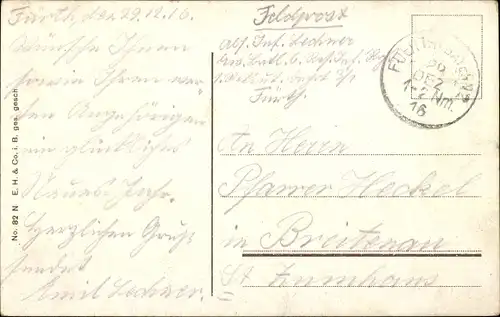 Fürth den 29.12.16.
Wünsche Ihnen
sowie Ihren wer-
ten Angehörigen
ein glückliches
Neues Jahr.
Herzlichen Gruß
sendet
Emil Lechner.
No. 82 N E. H. & Co. i. B. ges. gesch.
Feldpost
Abs. Inf. Lechner
Fürth.
29
DEZ
1-2 Nm.
16
An Herrn
Pfarrer Heckel
in Breitenau
Zumhaus